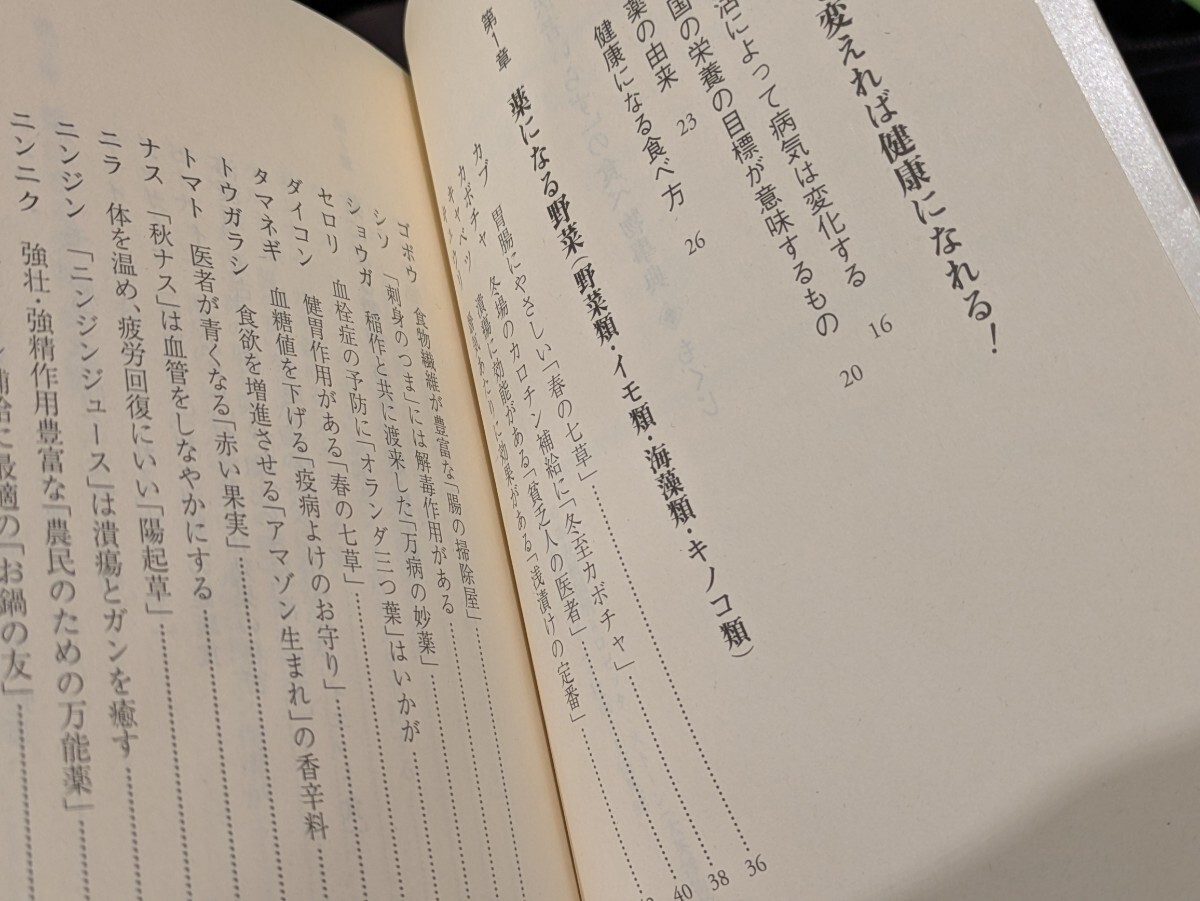 変えれば健康になれる！
活によって病気は変化する 16
国の栄養の目標が意味するもの 20
薬の由来 23
健康になる食べ方 26
第1章 薬になる野菜（野菜類・イモ類・海藻類・キノコ類）
カブ 胃腸にやさしい「春の七草」 36
カボチャ 冬場のカロチン補給に「冬至カボチャ」 38
キャベツ 潰瘍に効能がある「貧乏人の医者」 40
暑気あたりに効果がある「浅漬けの定番」
ゴボウ 食物繊維が豊富な「腸の掃除屋」
シソ 「刺身のつま」には解毒作用がある
ショウガ 稲作と共に渡来した「万病の妙薬」
セロリ 血栓症の予防に「オランダ三つ葉」はいかが
ダイコン 健胃作用がある「春の七草」
タマネギ 血糖値を下げる「疫病よけのお守り」
トウガラシ 食欲を増進させる「アマゾン生まれ」の香辛料
トマト 医者が青くなる「赤い果実」
ナス 「秋ナス」は血管をしなやかにする
ニラ 体を温め、疲労回復にいい「陽起草」
ニンジン 「ニンジンジュース」は潰瘍とガンを癒す
ニンニク 強壮・強精作用豊富な「農民のための万能薬」
補給に最適の「お鍋の友」